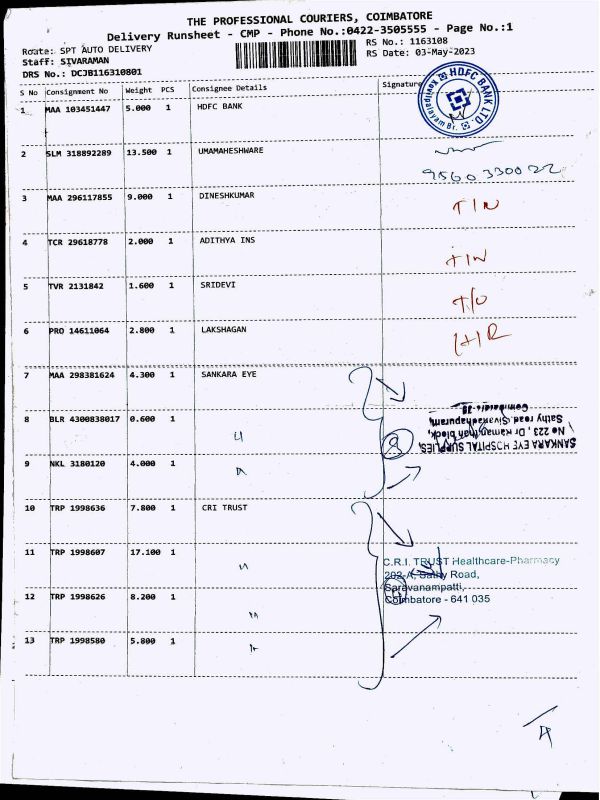 THE PROFESSIONAL COURIERS, COIMBATORE
Delivery Runsheet - CMP - Phone No.:0422-3505555 - Page No.:1
Route: SPT AUTO DELIVERY
RS No.: 1163108
Staff: SIVARAMAN
RS Date: 03-May-2023
DRS No.: DCJB116310801
S No Consignment No Weight PCS Consignee Details Signature
HDFC BANK LTD.
1 MAA 103451447 5.000 1 HDFC BANK
2 SLM 318892289 13.500 1 UMAMAHESHWARE
9560330022
3 MAA 296117855 9.000 1 DINESHKUMAR T/N
4 TCR 29618778 2.000 1 ADITHYA INS
5 TVR 2131842 1.600 1 SRIDEVI T/O
6 PRO 14611064 2.800 1 LAKSHAGAN
7 MAA 298381624 4.300 1 SANKARA EYE
8 BLR 4300838017 0.600 1
SANKARA EYE HOSPITAL SUPPLIES,
No 223, Dr Ramanathan block,
Sathy road, Sivanandhapuram,
Coimbatore-35
9 NKL 3180120 4.000 1
10 TRP 1998636 7.800 1 CRI TRUST
11 TRP 1998607 17.100 1
C.R.I. TRUST Healthcare-Pharmacy
202-A, Sathy Road,
Saravanampatti,
Coimbatore - 641 035
12 TRP 1998626 8.200 1
13 TRP 1998580 5.800 1